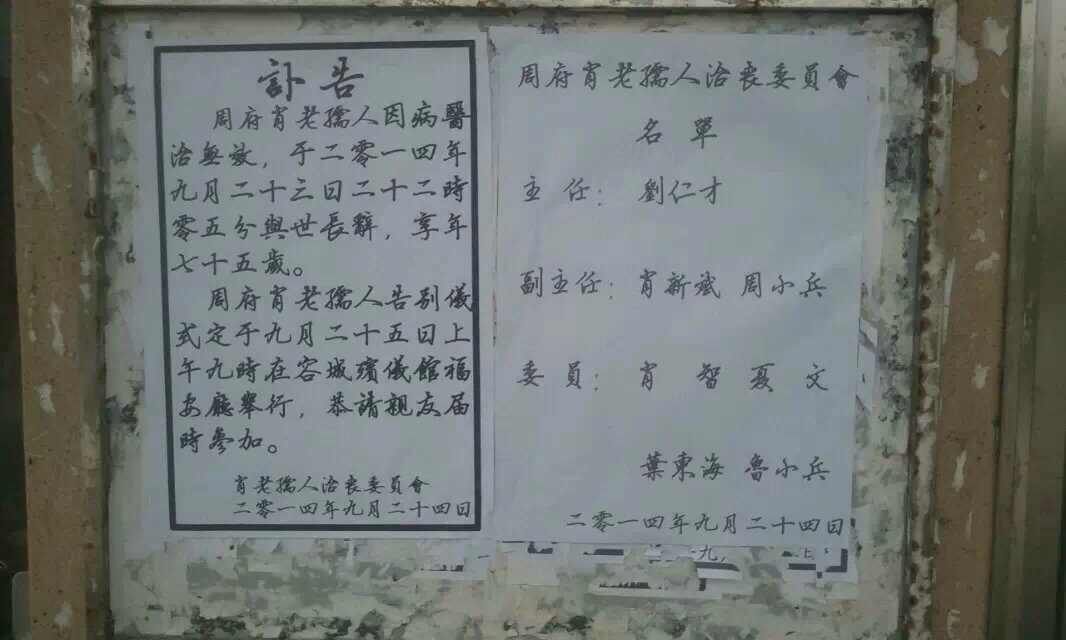 訃告
周府肖老孺人因病醫
治無效，于二零一四年
九月二十三日二十二時
零五分與世長辭，享年
七十五歲。
周府肖老孺人告别儀
式定于九月二十五日上
午九時在容城殯儀館福
安廳舉行，恭請親友届
時參加。
肖老孺人治喪委員會
二零一四年九月二十四日
周府肖老孺人治喪委員會
名單
主任：劉仁才
副主任：肖新斌 周小兵
委員：肖智 夏文
葉東海 魯小兵
二零一四年九月二十四日